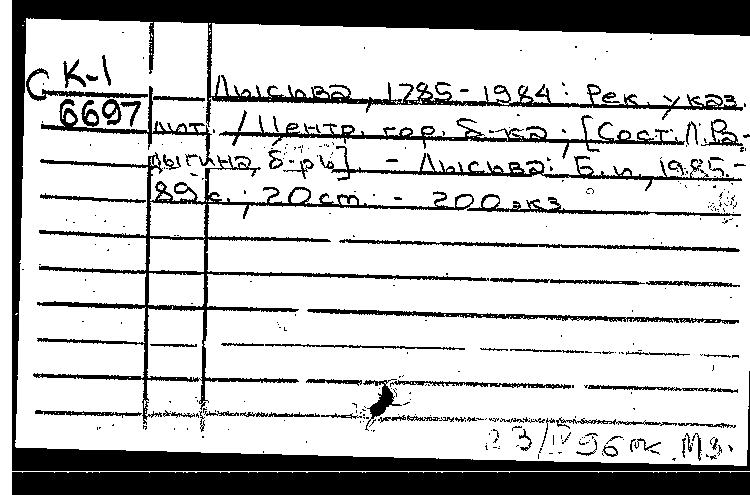 С К-1
6697
Лысьва, 1785-1984: Рек. указ.
лит. / Центр. гор. б-ка; [Сост. Л. Ра-
дыгина, б-рь]. - Лысьва: Б. и., 1985. -
89 с.; 20 см. - 200 экз.
23/IV 96